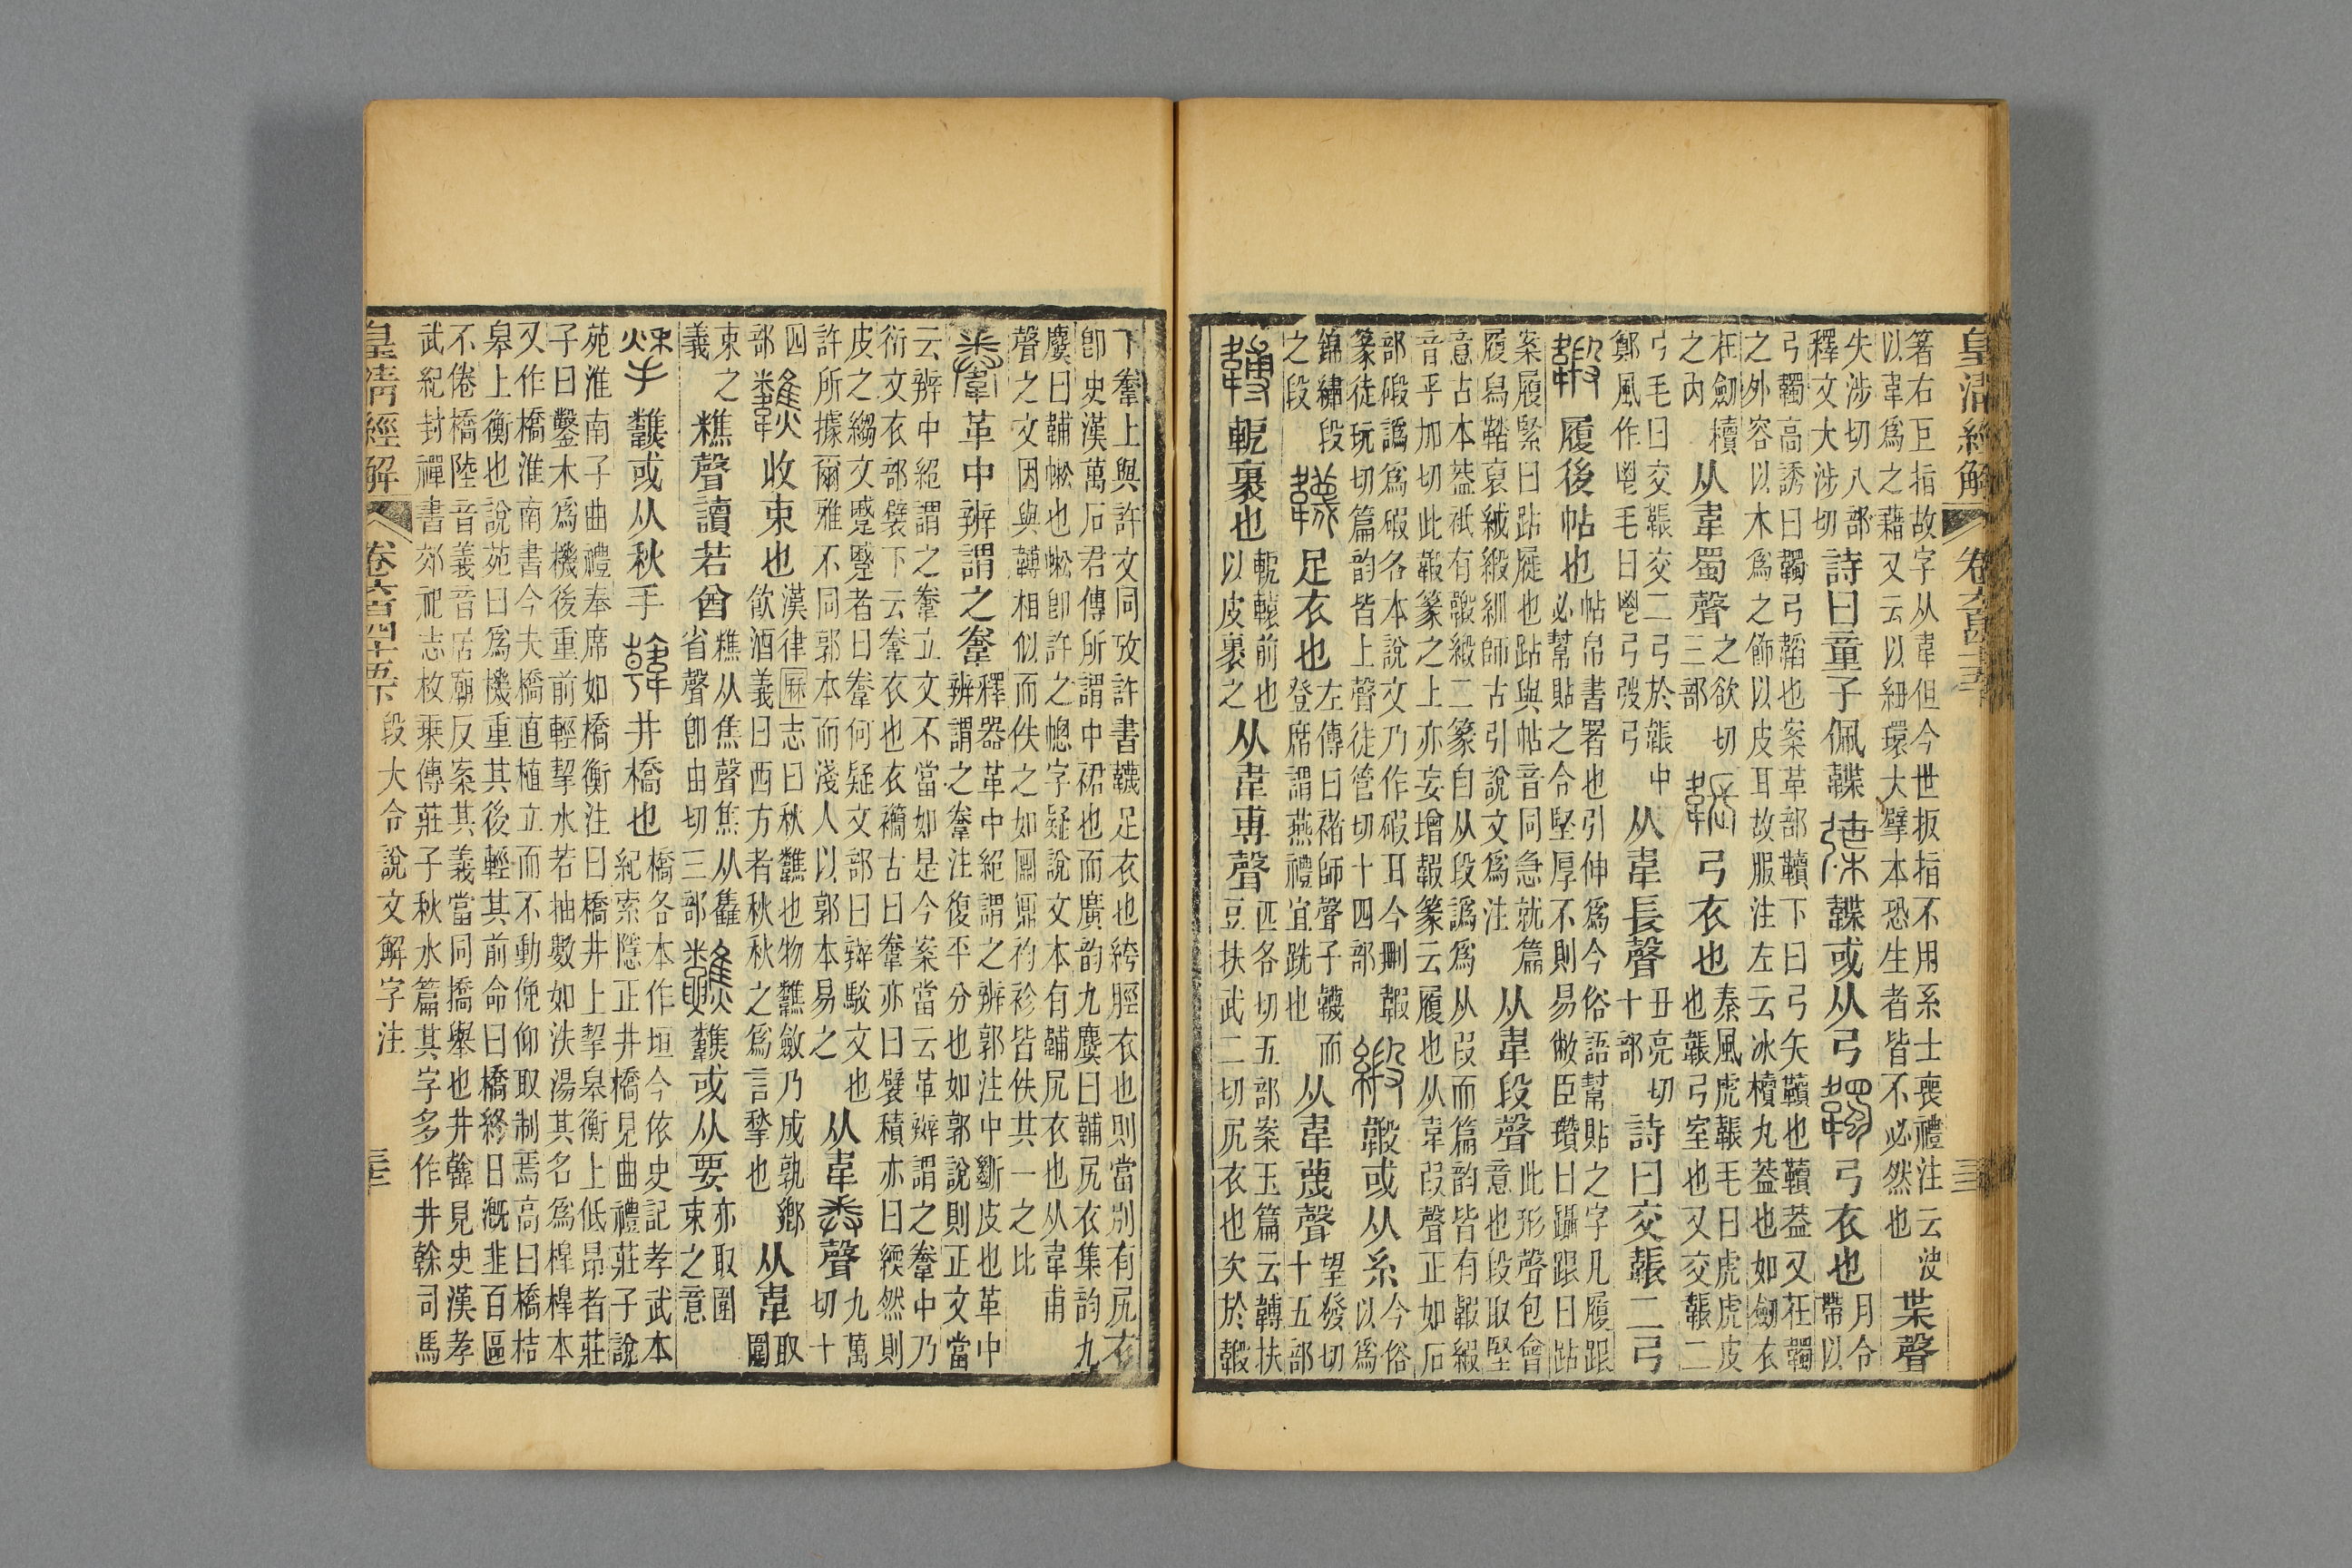 皇清經解 卷六百四十五 三三
箸右巨指故字从韋但今世扳指不用系士喪禮注云決
以韋爲之藉又云以紐環大擘本恐生者皆不必然也
枼聲
失涉切八部
釋文大涉切
詩曰童子佩韘 韘或从弓 弓衣也
月令
帶以
弓韣高誘曰韣弓韜也案革部韇下曰弓矢韇也韇葢又在韣
之外容以木爲之飾以皮耳故服注左云冰櫝九葢也如劒衣
在劒櫝
之內
从韋蜀聲
之欲切
三部
弓衣也
秦風虎韔毛曰虎虎皮
也韔弓室也又交韔二
弓毛曰交韔交二弓於韔中
鄭風作鬯毛曰鬯弓弢弓
从韋長聲
丑亮切
十部
詩曰交韔二弓
履後帖也
帖帛書署也引伸爲今俗語幫貼之字凡履跟
必幫貼之令堅厚不則易敝臣瓚曰躡跟曰跕
案履緊曰跕屣也跕與帖音同急就篇
履舄鞜裒絨緞紃師古引說文爲注
从韋段聲
此形聲包會
意也段取堅
意古本葢衹有緞二篆自从段譌爲从叚而篇韵皆有
音乎加切此篆之上亦妄增篆云履也从韋叚聲正如石
部碫譌爲碬各本說文乃作碬耳今刪
篆徒玩切篇韵皆上聲徒管切十四部
韏或从糸
今俗
以爲
錦繡段
之段
足衣也
左傳曰褚師聲子韤而
登席謂燕禮宜跣也
从韋蔑聲
望發切
十五部
軶裹也
軶轅前也
以皮裹之
从韋尃聲
匹各切五部案玉篇云轉扶
豆扶武二切尻衣也次於
下韏上與許文同攷許書韤足衣也絝脛衣也則當別有尻衣
卽史漢萬石君傳所謂中裙也而廣韵九麌曰䩉尻衣集韵九
麌曰䩉幒也幒卽許之幒字疑說文本有䩉尻衣也从韋甫
聲之文因與轉相似而佚之如圖鼏袀袗皆佚其一之比
革中辨謂之韏
釋器革中絕謂之辨郭注中斷皮也革中
辨謂之韏注復平分也如郭說則正文當
云辨中絕謂之韏立文不當如是今案當云革辨謂之韏中乃
衍文衣部襞下云韏衣也衣襵古曰韏亦曰襞積亦曰緛然則
皮之縐文蹙蹙者曰韏何疑文部曰辬駁文也
許所據爾雅不同郭本而淺人以郭本易之
从韋聲
九萬切十
四部
收束也
漢律厤志曰秋䊮也物䊮斂乃成孰鄉
飲酒義曰西方者秋秋之爲言揫也
从韋
取圍
束之
義
糕聲讀若酋
糕从焦聲焦从雥
省聲卽由切三部
或从要
亦取圍
束之意
或从秋手 井橋也
橋各本作垣今依史記孝武本
紀索隱正井橋見曲禮莊子說
苑淮南子曲禮奉席如橋衡注曰橋井上挈皋衡上低昂者莊
子曰鑿木爲機後重前輕挈水若抽數如泆湯其名爲橰橰本
又作橋淮南書今夫橋直植立而不動俛仰取制焉高曰橋桔
皋上衡也說苑曰爲機重其後輕其前命曰橋終日漑韭百區
不倦橋陸音義音居廟反案其義當同撟舉也井榦見史漢孝
武紀封禪書郊祀志枚乗傳莊子秋水篇其字多作井榦司馬
皇清經解 卷六百四十五下 段大令說文解字注